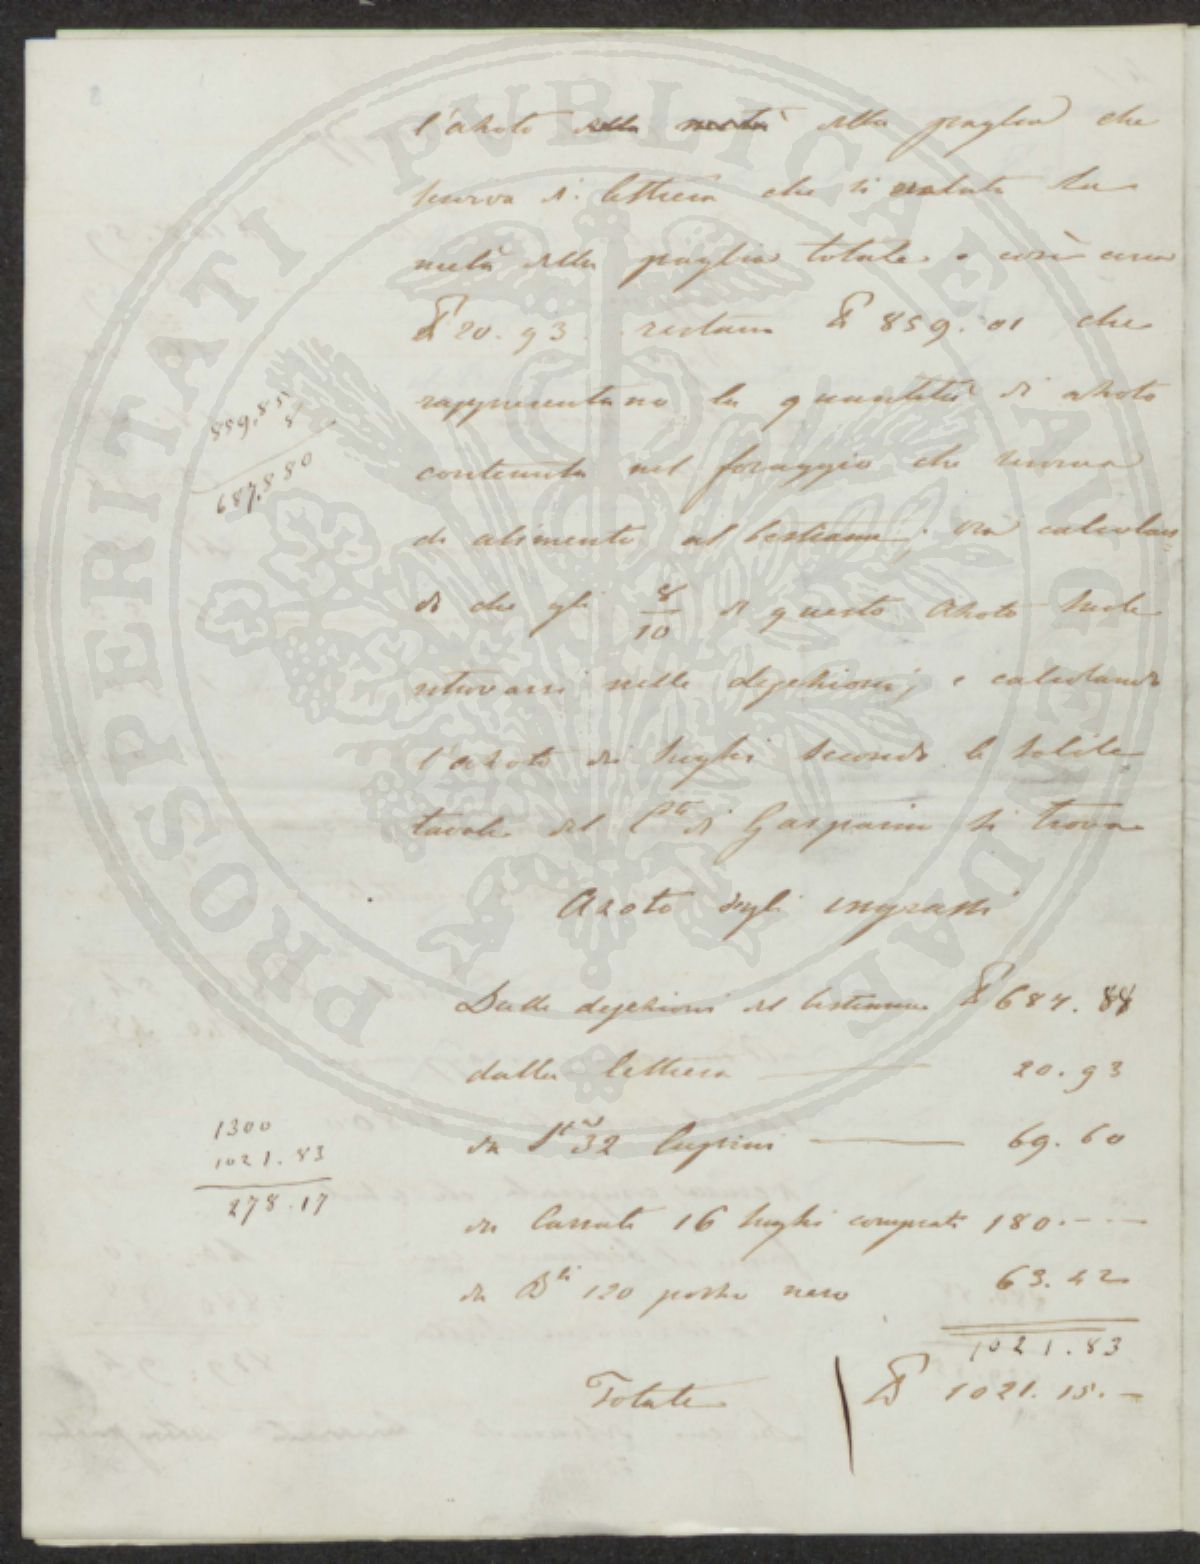 l'azoto della metà della paglia che
serviva di lettiera che si valuta la
metà della paglia totale e così circa
℔ 20.93 restano ℔ 859.01 che
rappresentano la quantità di azoto
contenuta nel foraggio che serviva
di alimento al bestiame; ora calcolan=
do che gli 8/10 di questo azoto suole
ritrovarsi nelle dejezioni, e calcolando
l'azoto di sughi secondo le solite
tavole del C.te di Gasparin si trova
Azoto degli ingrassi
Dalle dejezioni del bestiame ℔ 687.88
dalla lettiera 20.93
da 32 lupini 69.60
da Carrate 16 sughi comprati 180.--
da B.li 120 pozzo nero 63.42
1021.83
Totale ℔ 1021.15.-
859.85
8
687.880
1300
1021.83
278.17
PROSPERITATI PUBLICAE AUGENDAE